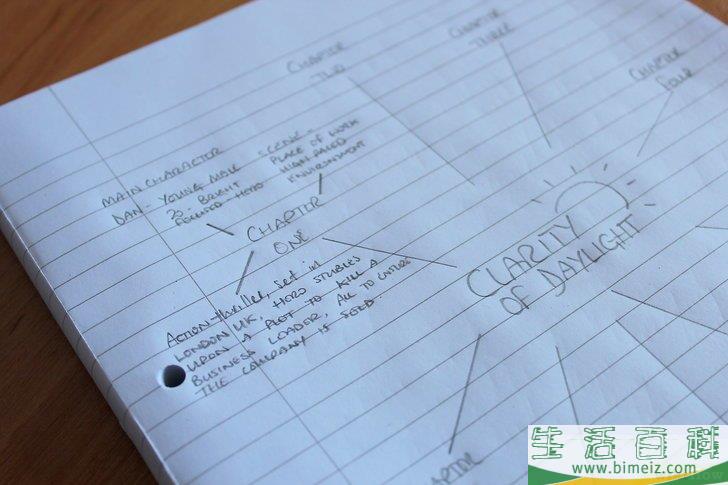 CHAPTER
TWO
CHAPTER
THREE
CHAPTER
FOUR
MAIN CHARACTER
DAN - YOUNG, MALE
30 - BRIGHT
FOCUSED - HERO
SCENE -
PLACE OF WORK
HIGH PACED
ENVIRONMENT
CHAPTER
ONE
CLARITY
OF DAYLIGHT
Action-thriller, set in
LONDON UK, HERO STUBLES
UPON A PLOT TO KILL A
BUSINESS LEADER, ALL TO ENSURE
THE COMPANY IS SOLD.
生活百科
www.bimeiz.com